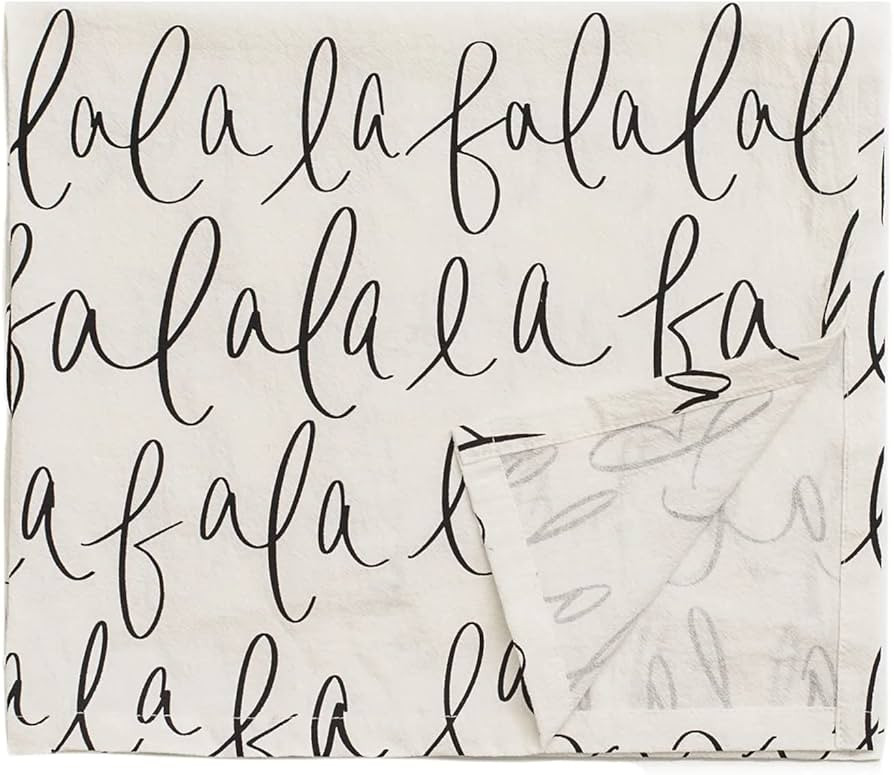 lala la falalal f
falala la fa l
a fala l
a la fa la